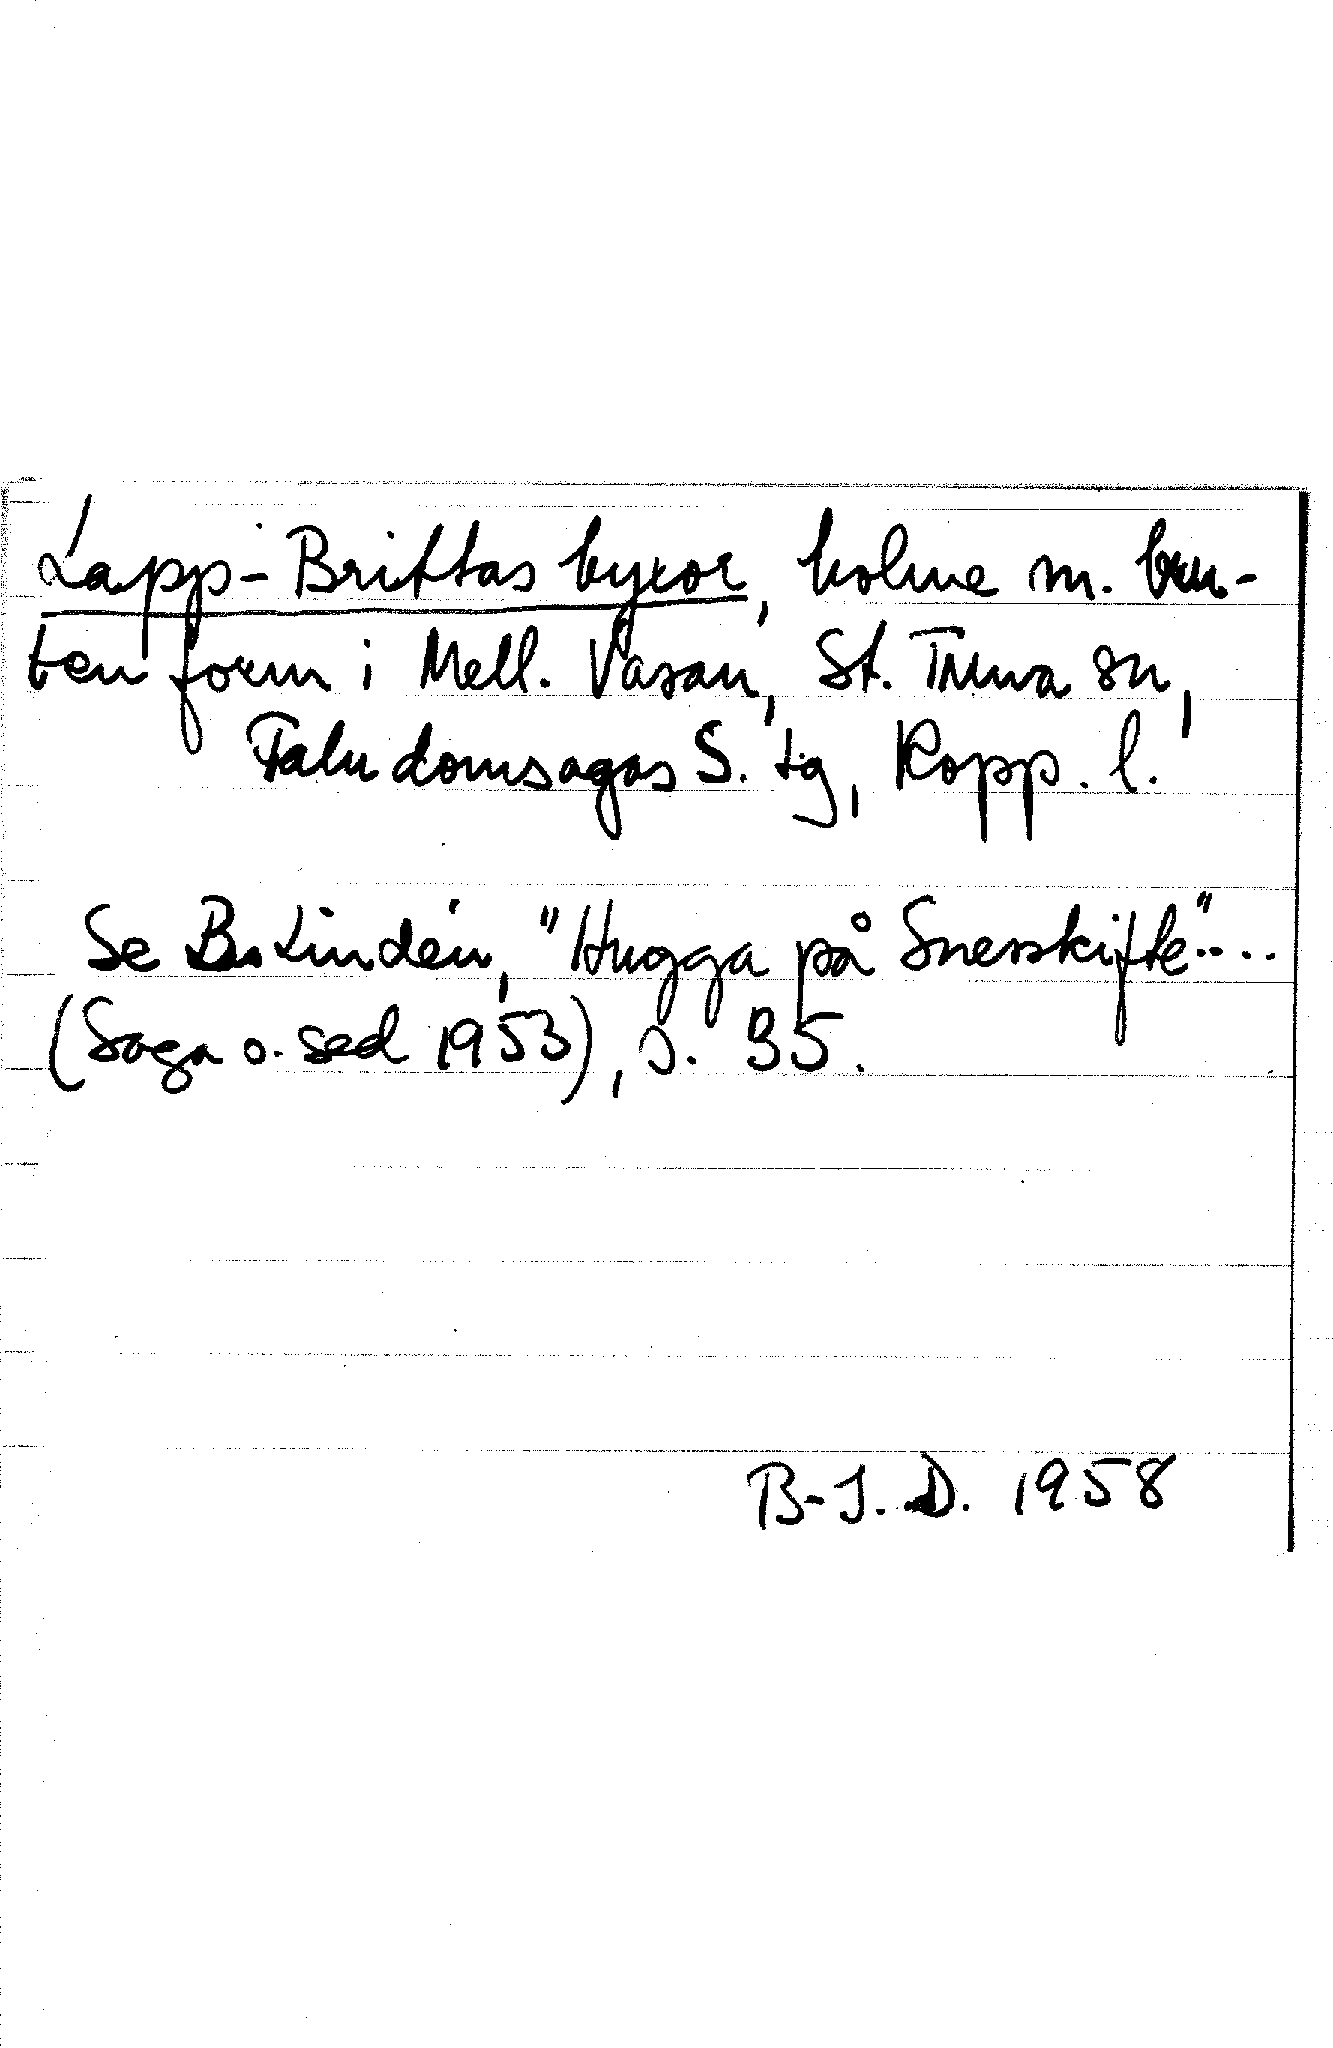 Lapp-Brittas byxor, holme m. bru-
ten form i Mell. Vasan, St. Tuna sn,
Falu domsagas S. tg, Kopp. l.
Se B. Lindén, "Hugga på Snesskifte"...
(Saga o. sed 1953), s. 35.
B-I. D. 1958